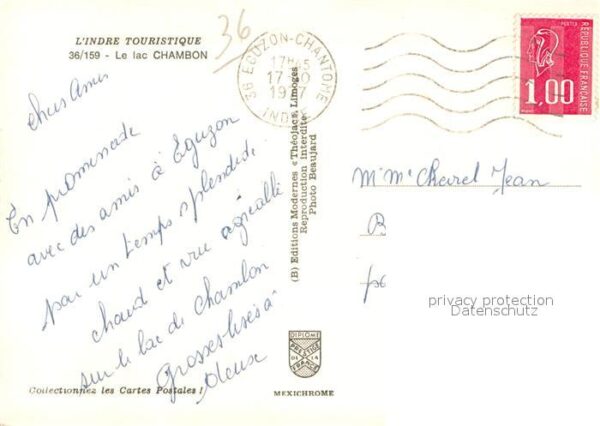 L'INDRE TOURISTIQUE
36/159 - Le lac CHAMBON
36
36 EGUZON-CHANTOME
17H
INDRE
POSTES
1,00
REPUBLIQUE FRANÇAISE
chers Amis
En promenade
avec des amis à Eguzon
par un temps splendide
chaud et vue agréable
sur le lac de Chambon
Grosses bises à
deux
(B) Editions Modernes « Théojac », Limoges
Reproduction Interdite
Photo Beaujard
M. Mme Jean
B
privacy protection
Datenschutz
DIPLOME
PRESTIGE
FRANCE
Collectionnez les Cartes Postales !
MEXICHROME